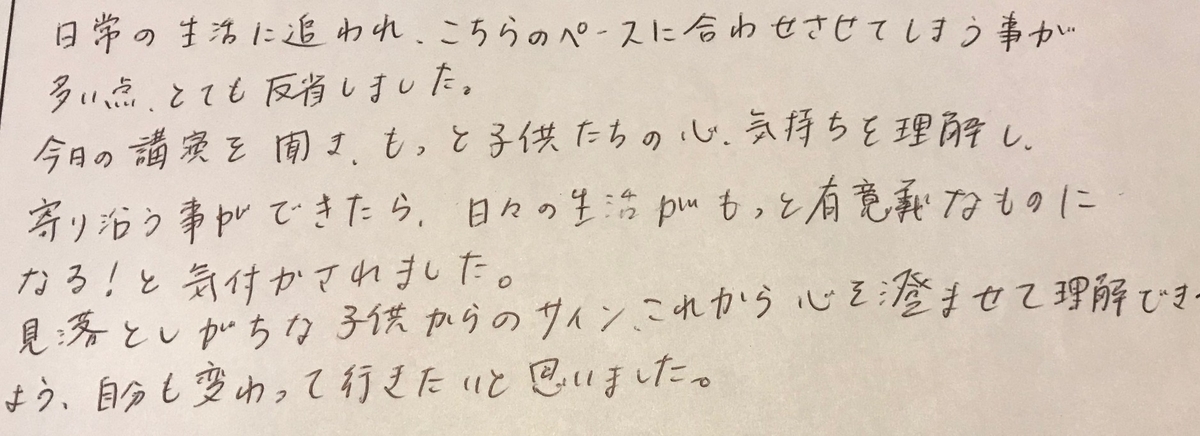 日常の生活に追われ、こちらのペースに合わせさせてしまう事が
多い点、とても反省しました。
今日の講演を聞き、もっと子供たちの心、気持ちを理解し、
寄り沿う事ができたら、日々の生活がもっと有意義なものに
なる!と気付かされました。
見落としがちな子供からのサイン、これから心を澄ませて理解でき
よう、自分も変わって行きたいと思いました。